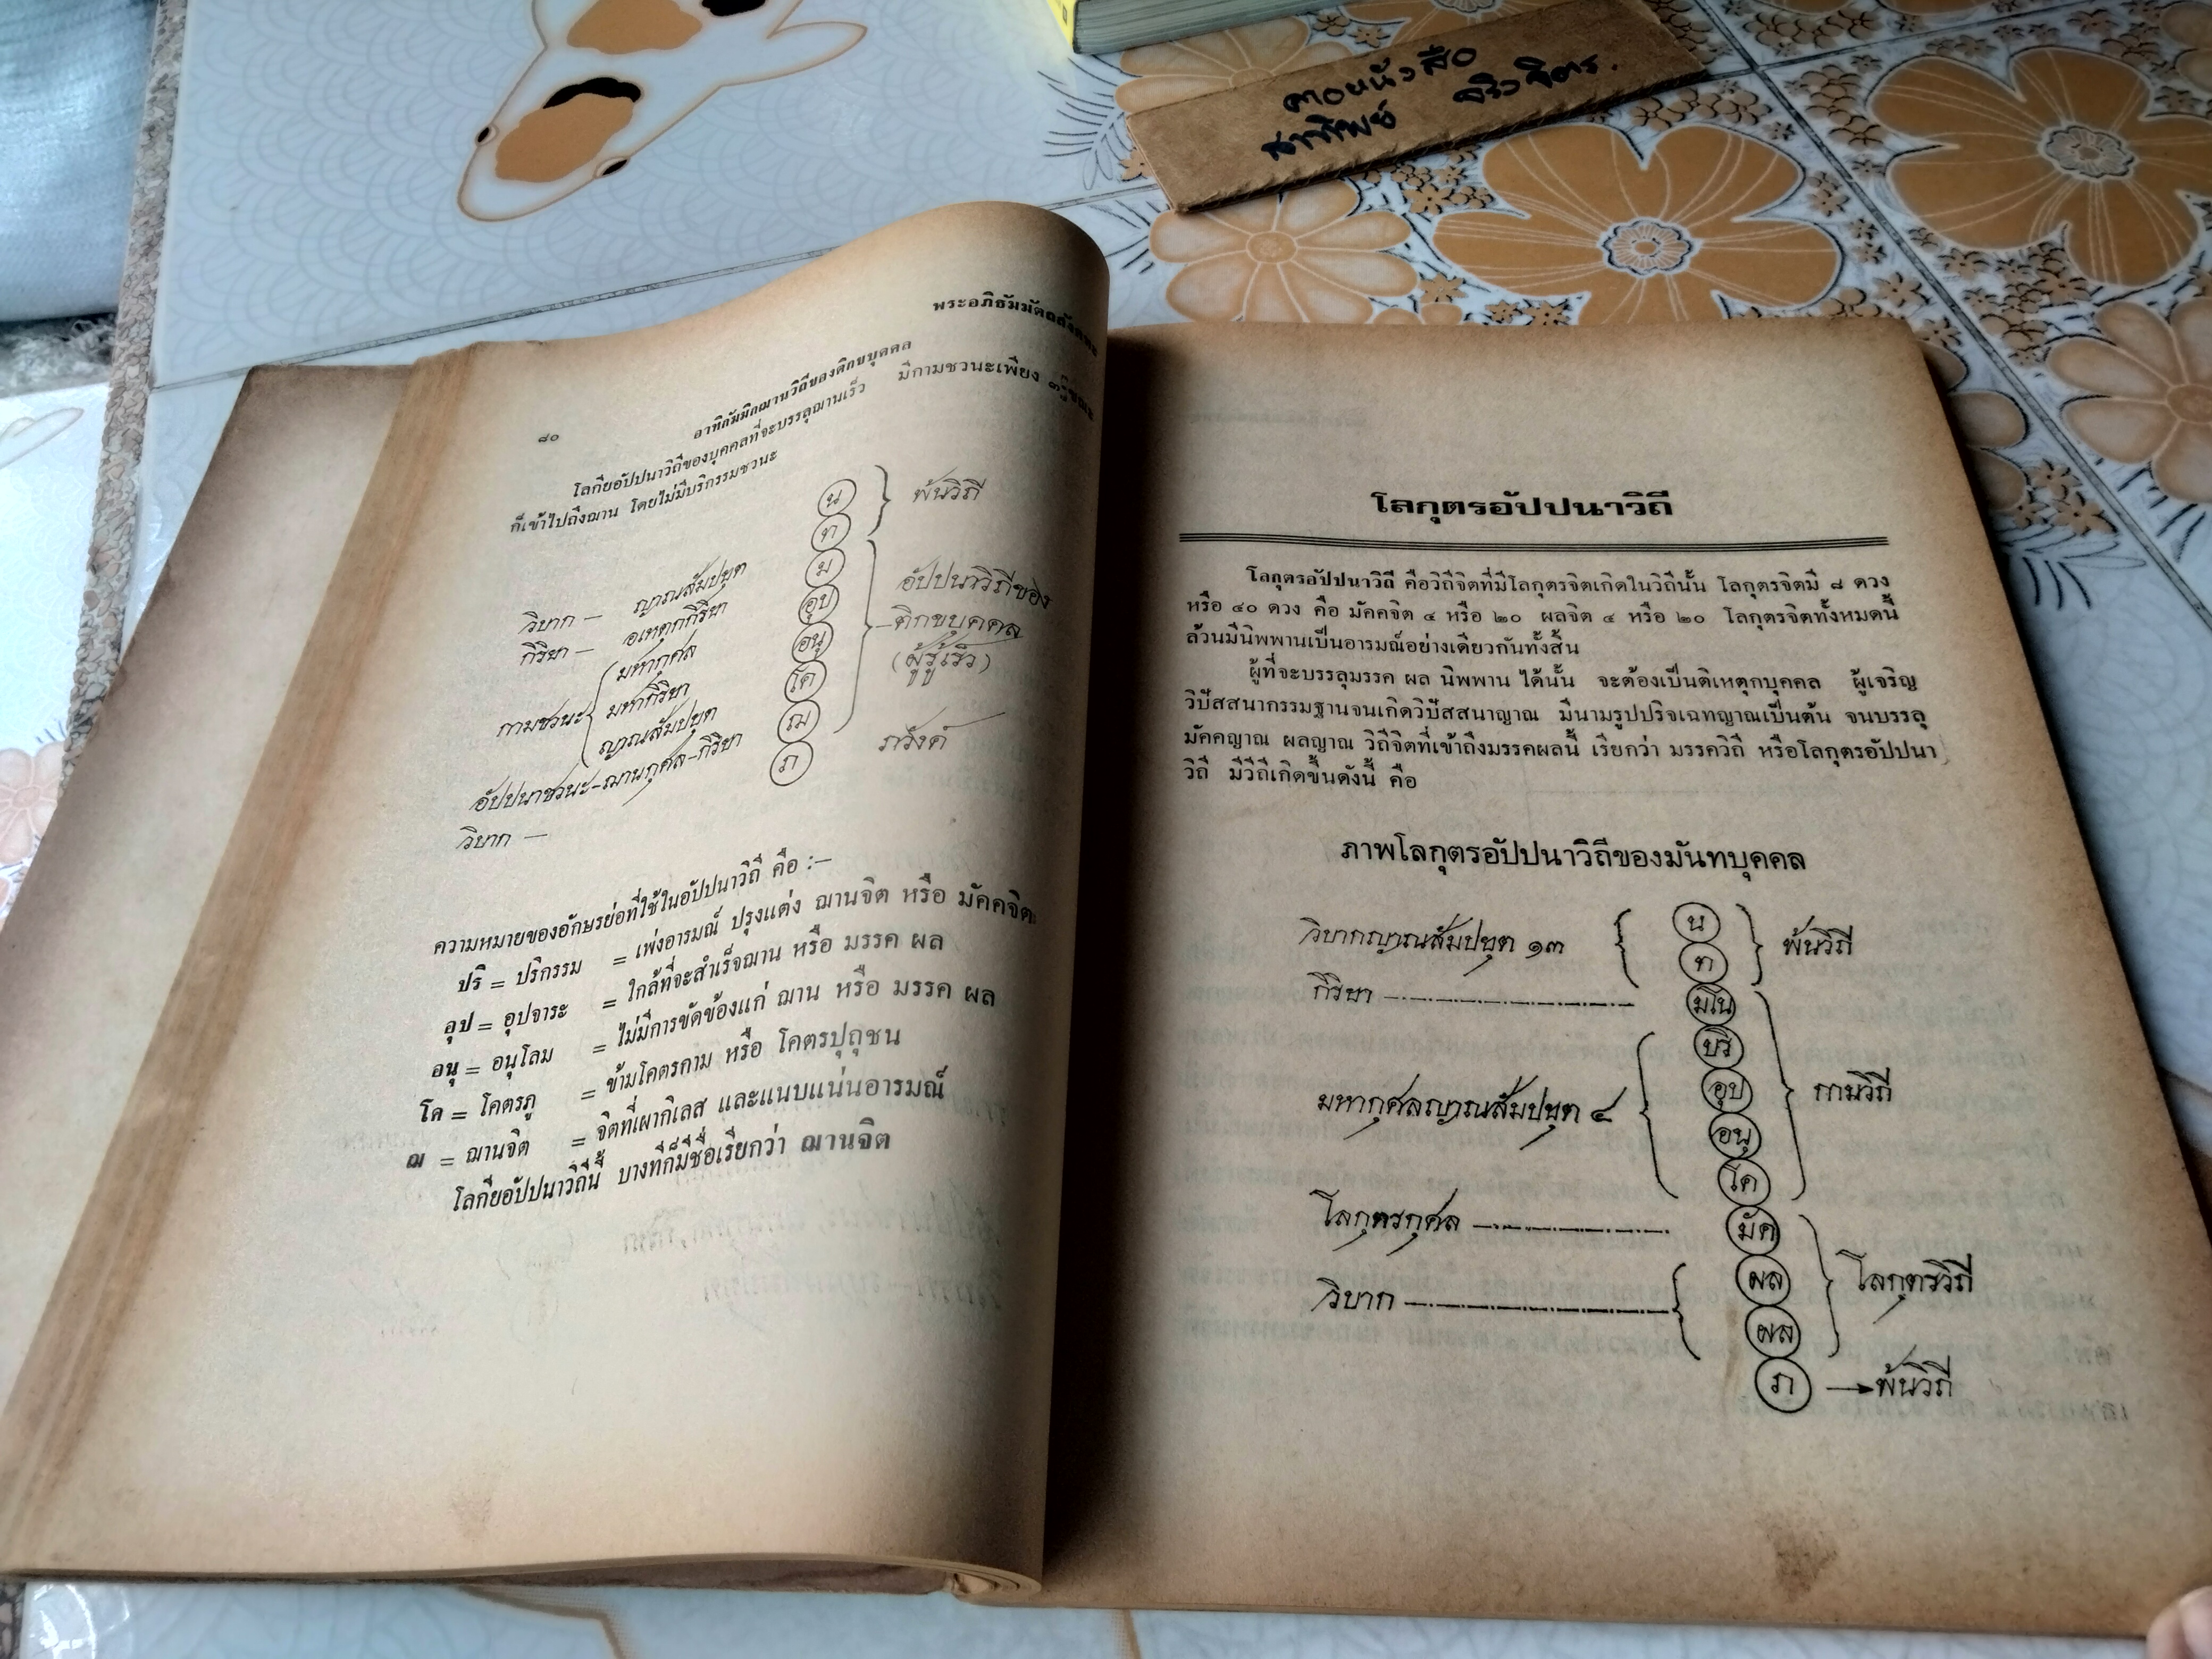 ตอบหนังสือ
สาทิพย์ จริวจิตร.
พระอภิธัมมัตถสังคหะ
๘๐
อาทิกัมมิกฌานวิถีของติกขบุคคล
โลกียอัปปนาวิถีของบุคคลที่จะบรรลุฌานเร็ว มีกามชวนะเพียง ๓
ก็เข้าไปถึงฌาน โดยไม่มีบริกรรมชวนะ
น
ท
พ้นวิถี
วิบาก — ญาณสัมปยุต
กิริยา — อเหตุกกิริยา
กามชวนะ
มหากุศล
มหากิริยา
ญาณสัมปยุต
อัปปนาชวนะ-ฌานกุศล-กิริยา
วิบาก —
ม
อุป
อนุ
โค
ฌ
ภ
อัปปนาวิถีของ
ติกขบุคคล
(ผู้รู้เร็ว)
ภวังค์
ความหมายของอักษรย่อที่ใช้ในอัปปนาวิถี คือ :—
ปริ = ปริกรรม = เพ่งอารมณ์ ปรุงแต่ง ฌานจิต หรือ มัคคจิต
อุป = อุปจาระ = ใกล้ที่จะสำเร็จฌาน หรือ มรรค ผล
อนุ = อนุโลม = ไม่มีการขัดข้องแก่ ฌาน หรือ มรรค ผล
โค = โคตรภู = ข้ามโคตรกาม หรือ โคตรปุถุชน
ฌ = ฌานจิต = จิตที่เผากิเลส และแนบแน่นอารมณ์
โลกียอัปปนาวิถีนี้ บางทีก็มีชื่อเรียกว่า ฌานจิต
โลกุตรอัปปนาวิถี
โลกุตรอัปปนาวิถี คือวิถีจิตที่มีโลกุตรจิตเกิดในวิถีนั้น โลกุตรจิตมี ๘ ดวง
หรือ ๔๐ ดวง คือ มัคคจิต ๔ หรือ ๒๐ ผลจิต ๔ หรือ ๒๐ โลกุตรจิตทั้งหมดนี้
ล้วนมีนิพพานเป็นอารมณ์อย่างเดียวกันทั้งสิ้น
ผู้ที่จะบรรลุมรรค ผล นิพพาน ได้นั้น จะต้องเป็นติเหตุกบุคคล ผู้เจริญ
วิปัสสนากรรมฐานจนเกิดวิปัสสนาญาณ มีนามรูปปริจเฉทญาณเป็นต้น จนบรรลุ
มัคคญาณ ผลญาณ วิถีจิตที่เข้าถึงมรรคผลนี้ เรียกว่า มรรควิถี หรือโลกุตรอัปปนา
วิถี มีวิถีเกิดขึ้นดังนี้ คือ
ภาพโลกุตรอัปปนาวิถีของมันทบุคคล
วิบากญาณสัมปยุต ๑๓
น
ท
พ้นวิถี
กิริยา
มโน
มหากุศลญาณสัมปยุต ๔
ปริ
อุป
อนุ
โค
กามวิถี
โลกุตรกุศล
มัค
วิบาก
ผล
ผล
โลกุตรวิถี
ภ → พ้นวิถี